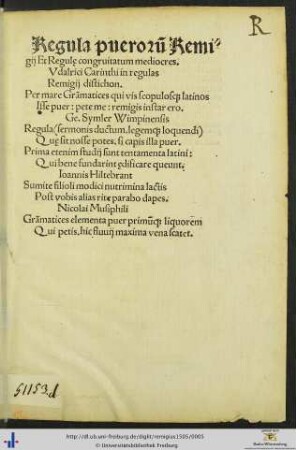 R
Regula puerorũ Remi-
gij Et Regulę congruitatum mediocres.
Vdalrici Carinthi in regulas
Remigij distichon.
Per mare Grãmatices qui vis scopulosq; latinos
Isse puer: pete me: remigis instar ero.
Ge. Symler Wimpinensis
Regula (sermonis ductum, legemq; loquendi)
Quę sit nosse potes, si capis illa puer.
Prima etenim studij sunt tentamenta latini:
Qui bene fundarint ędificare queunt.
Ioannis Hiltebrant
Sumite filioli modici nutrimina lactis
Post vobis alias rite parabo dapes.
Nicolai Musiphili
Grãmatices elementa puer primũq; liquorem
Qui petis, hic fluuij maxima vena scatet.
51153,d
http://dl.ub.uni-freiburg.de/diglit/remigius1505/0005
© Universitätsbibliothek Freiburg
Baden-Württemberg